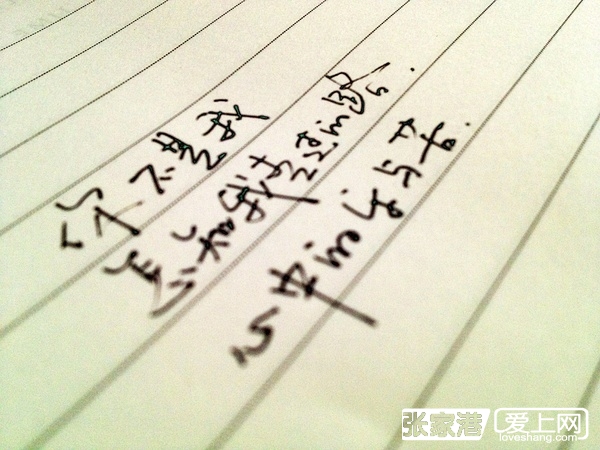 你不是我
怎知我走过的路.
心中的乐与苦.
张家港 爱上网
loveshang.com